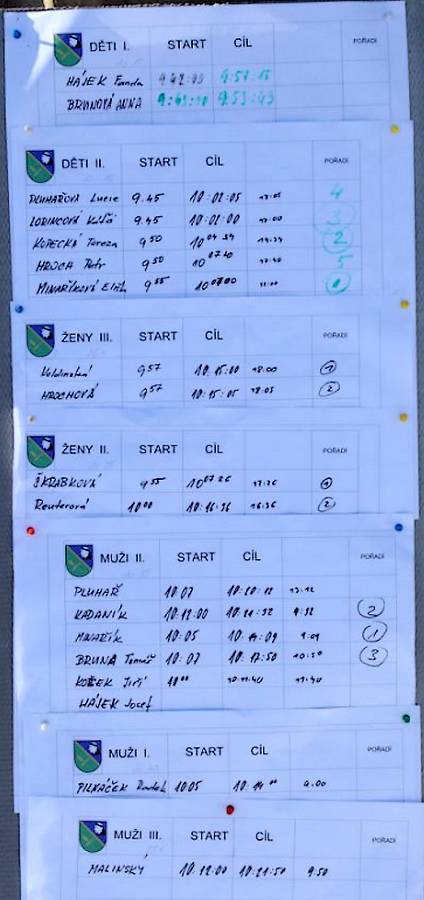 DĚTI I. START CÍL POŘADÍ
HÁJEK Fanda 9:42:00 9:57:15
BRUNOVÁ ANNA 9:43:00 9:53:43
DĚTI II. START CÍL POŘADÍ
PLUHAŘOVA Lucie 9.45 10:02:05 17:05 4
9.45 10:02:00 17:00 3
KOPECKÁ Tereza 9 50 10 04 34 14:34 2
HROCH Petr 9 50 10 5
MINAŘÍKOVÁ 9 55 1
ŽENY III. START CÍL POŘADÍ
9 57 10:15:00 18:00 1
HROCHOVÁ 9 57 10:15:05 18:05 2
ŽENY II. START CÍL POŘADÍ
ŠKRABKOVÁ 9 55 10 07 26 12:26 1
Reuterová 10 00 10:16:36 16:36 2
MUŽI II. START CÍL POŘADÍ
PLUHAŘ 10:07 10:20:12 13:12
KADANÍK 10:12:00 10:21:32 9:32 2
MINAŘÍK 10:05 10:14:09 9:09 1
BRUNA Tomáš 10:07 10:17:50 10:50 3
KOŘEK Jiří 10 00 10:11:40 11:40
HÁJEK Josef
MUŽI I. START CÍL POŘADÍ
PILNÁČEK Radek 10 05 10:14 00 9.00
MUŽI III. START CÍL POŘADÍ
MALINSKÝ 10:12:00 10:21:50 9:50